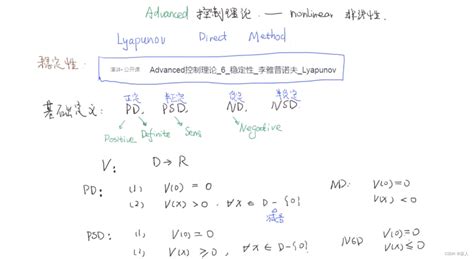 Advanced 控制理论 — nonlinear 非线性.
Lyapunov Direct Method
稳定性:
Advanced控制理论_6_稳定性_李雅普诺夫_Lyapunov
正定 半正定 负定 半负定
基础定义: PD, PSD, ND, NSD
Positive Definite Semi Negative
V: D→R
PD: (1) V(0) = 0
(2) V(x) > 0, ∀x ∈ D-{0}
ND: V(0)=0
V(x) < 0
PSD: (1) V(0) = 0
V(x) ≥ 0, ∀x ∈ D-{0}
NSD V(0)=0
V(x) ≤ 0